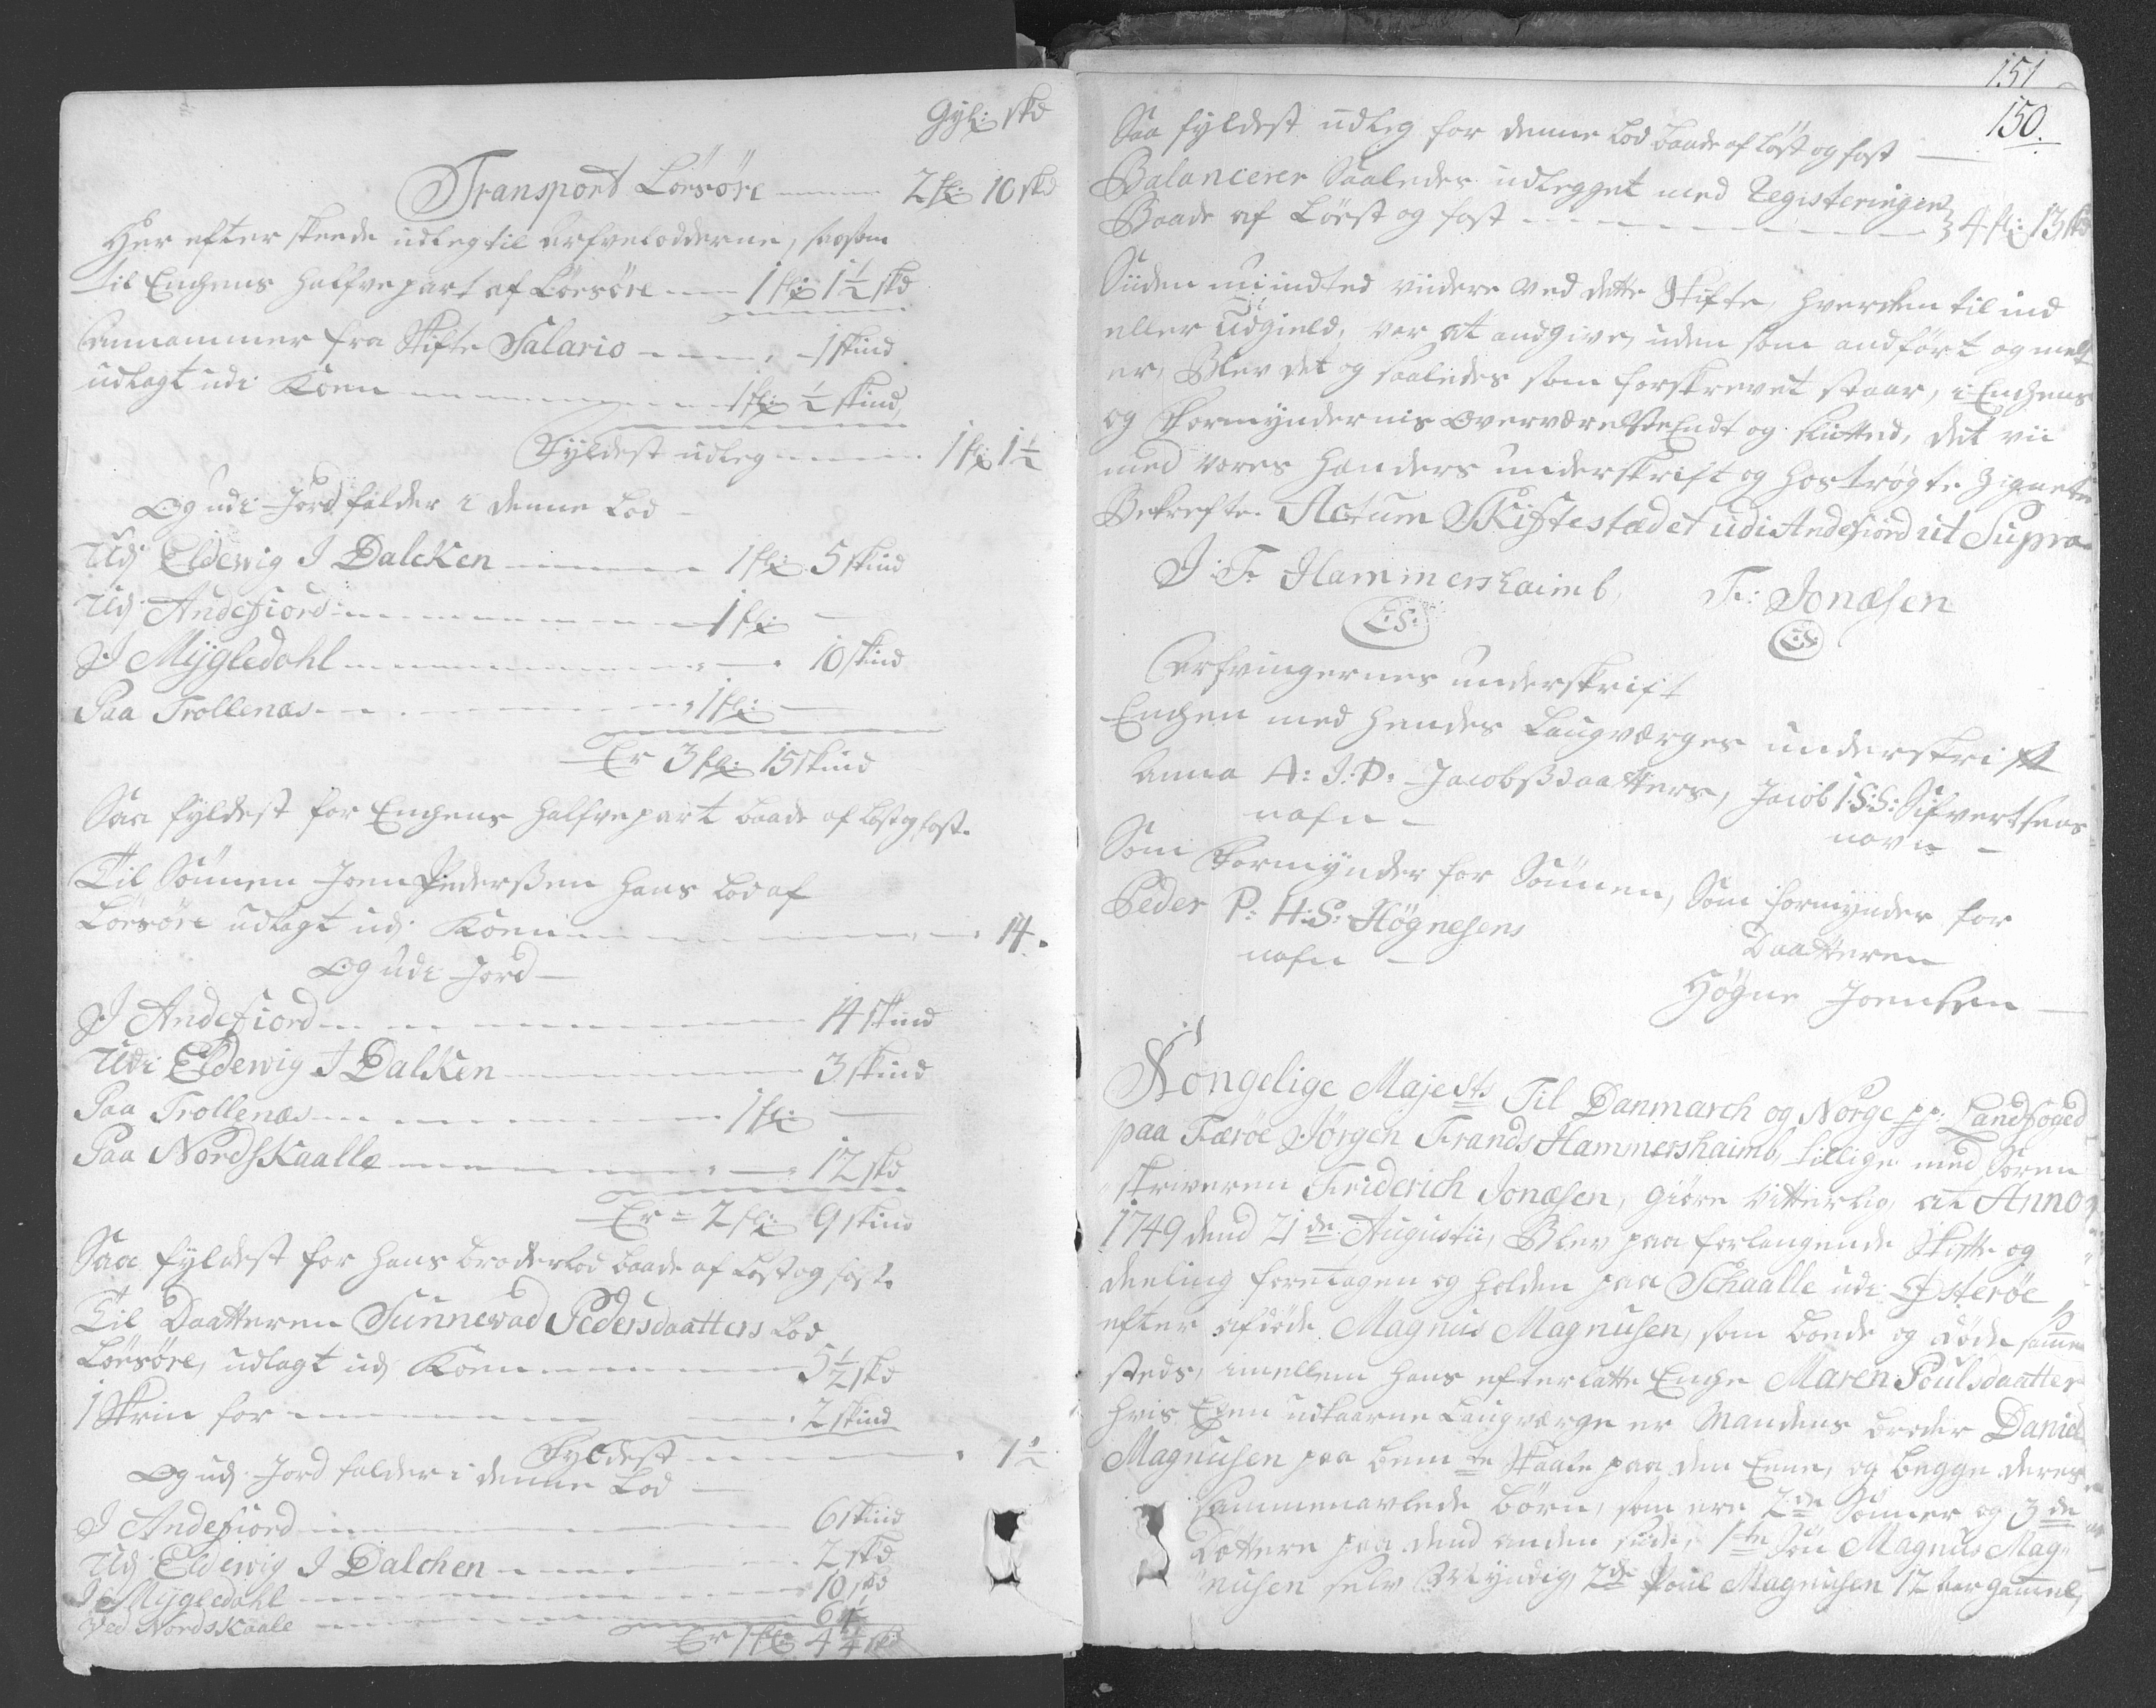 Gyl: skd
Transport Løesøre 2 fl: 10 skd
Her efter skeede udleg til Arfvelodderne, saasom
til Enchens halfve part af Løesøre 1 fl: 1½ skd
Annammer fra Skifte Salario 1 skind
udlagt udi Koen 1 fl: ½ skind
Fyldest udleg 1 fl: 1½
Og udi Jord falder i denne Lod
Udj Eldewig I Dalcken 1 fl: 5 skind
Udj Andefiord 1 fl:
I Mÿgledahl 10 skind
Paa Trollenæs 1 fl:
Er 3 fl: 15 skind
Saa fyldest for Enchens halfve part baade af Løst og fast.
Til Sønnen Joen Pederssen hans Lod af
Løesøre udlagt udj Koen 14.
Og udi Jord
I Andefiord 14 skind
Udi Eldewig I Dalcken 3 skind
Paa Trollenæs 1 fl:
Paa Nordskaalle 12 skd
Er 2 fl: 9 skind
Saa fyldest for hans broderlod baade af Løst og fast.
Til Daatteren Sunnevad Pedersdaatters Lod
Løesøre, udlagt udj Koen 5½ skd
1 Skrin for 2 skind
Fyldest 7½
Og udj Jord falder i denne Lod
I Andefiord 6 skind
Udj Eldewig I Dalchen 2 skd
I Mÿgledahl 10 skd
Ved Nordskaale 6¼
Er 1 fl: 4¼ skd
151
150.
Saa fyldest udleg for denne Lod baade af løst og fast
Balancerer Saaledes udlegget med Registeringen
Baade af Løest og fast 4 fl: 13 skd
Siiden nu indted viidere ved dette Skifte, hverken til ind
eller Udgield, var at andgive, uden som andført og melt
er, Blev det og saaledes som forskrevet staar, i Enchens
og Formyndernis Overværelse Endt og slutted, det vii
med vores Hænders underskrift og hostrøgte Zigneter
Bekrefte. Actum Skiftestædet udi Andefiord ut Supra
J: F: Hammershaimb F: Jonæsen
L:S: L:S:
Arfvingernes underskrift
Enchen med hendes Laugværges underskrift
Anna A: J: D: Jacobsdaatters, Jacob I:S:S: Sifvertsens
nafn navn
Som Formynder for Sønnen, Som formynder for
Peder P: H:S: Høgnesens Daatteren
nafn
Høgne Joenssen
Kongelige Majests Til Danmarch og Norge pp. Landfoged
paa Færøe Jørgen Frands Hammershaimb, tillige med Soren
skriveren Friderich Jonæsen, giøre vitterlig at Anno
1749 dend 21de Augustii, Blev paa forlangende Skifte og
deeling foretagen og holden paa Schaalle udi Østerøe
efter afdøde Magnus Magnusen, som boede og døde samme
steds, imellem hans efterlatte Enche Maren Poulsdaatter
hvis udkaarne Laugværge er Mandens broder Daniel
Magnusen paa bemte Skaale paa den Eene, og begge deres
sammenavlede børn, som ere 2de Sønner og 3de
Døttere paa dend anden side, 1te Søn Magnus Mag-
nusen selv Myndig 2de Poul Magnusen 12 aar gammel,